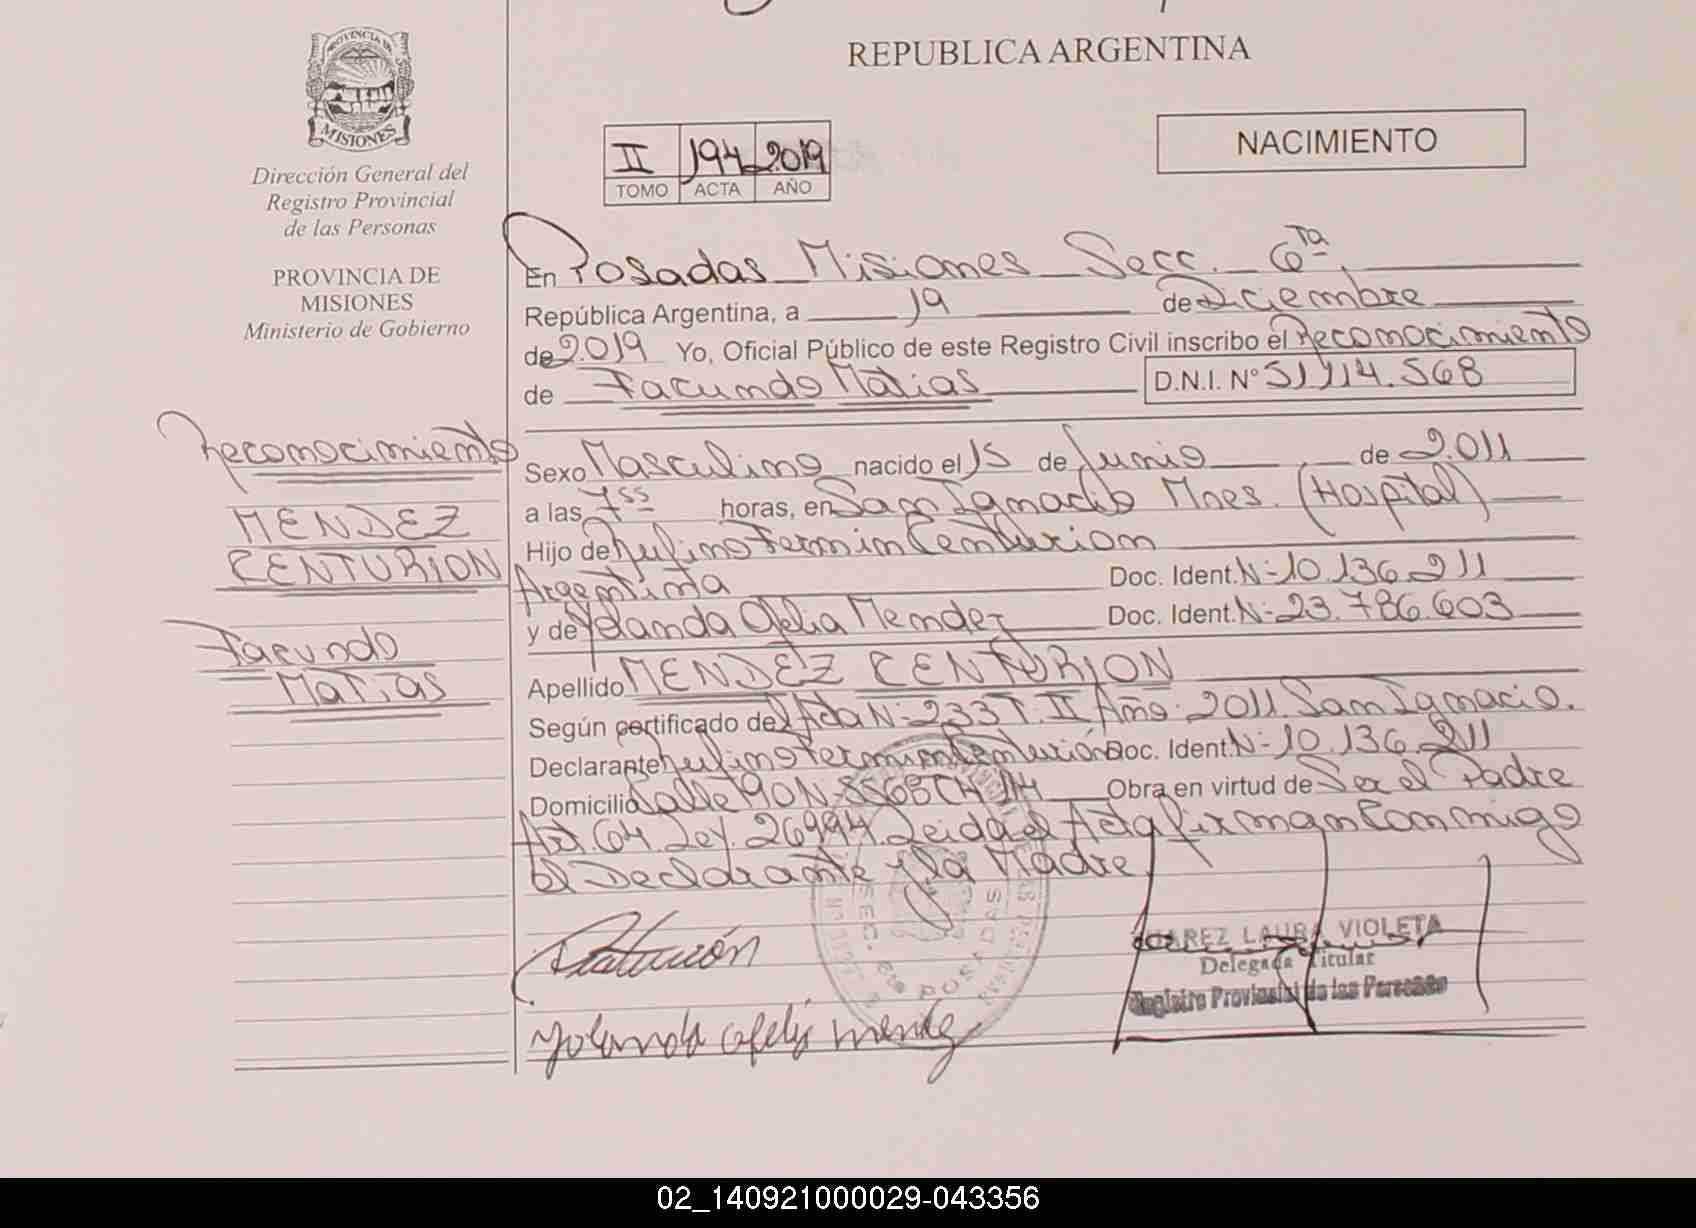 PROVINCIA DE
MISIONES
Dirección General del
Registro Provincial
de las Personas
PROVINCIA DE
MISIONES
Ministerio de Gobierno
Reconocimiento
MENDEZ
CENTURION
Facundo
Matias
REPUBLICA ARGENTINA
NACIMIENTO
II 194 2.019
TOMO ACTA AÑO
En Posadas Misiones Secc. 6ta
República Argentina, a 19 de Diciembre
de 2.019 Yo, Oficial Público de este Registro Civil inscribo el Reconocimiento
de Facundo Matias D.N.I. N° 51.114.568
Sexo Masculino nacido el 15 de Junio de 2.011
a las 7ss horas, en San Ignacio Mnes. (Hospital)
Hijo de Rufino Fermin Centurion
Argentina Doc. Ident. N- 10.136.211
y de Yolanda Ofelia Mendez Doc. Ident. N- 23.786.603
Apellido MENDEZ CENTURION
Según certificado del Acta N- 233 T. II Año 2011 San Ignacio.
Declarante Rufino Fermin Centurión Doc. Ident. N- 10.136.211
Domicilio Calle 140 N- CH Obra en virtud de Ser el Padre
Art. 64 Ley. 26994. Leida el Acta firman Conmigo
El Declarante y la Madre.
SEC. 6ta POSADAS
JUAREZ LAURA VIOLETA
Delegada Titular
Registro Provincial de las Personas
Yolanda Ofelia Mendez
02_140921000029-043356